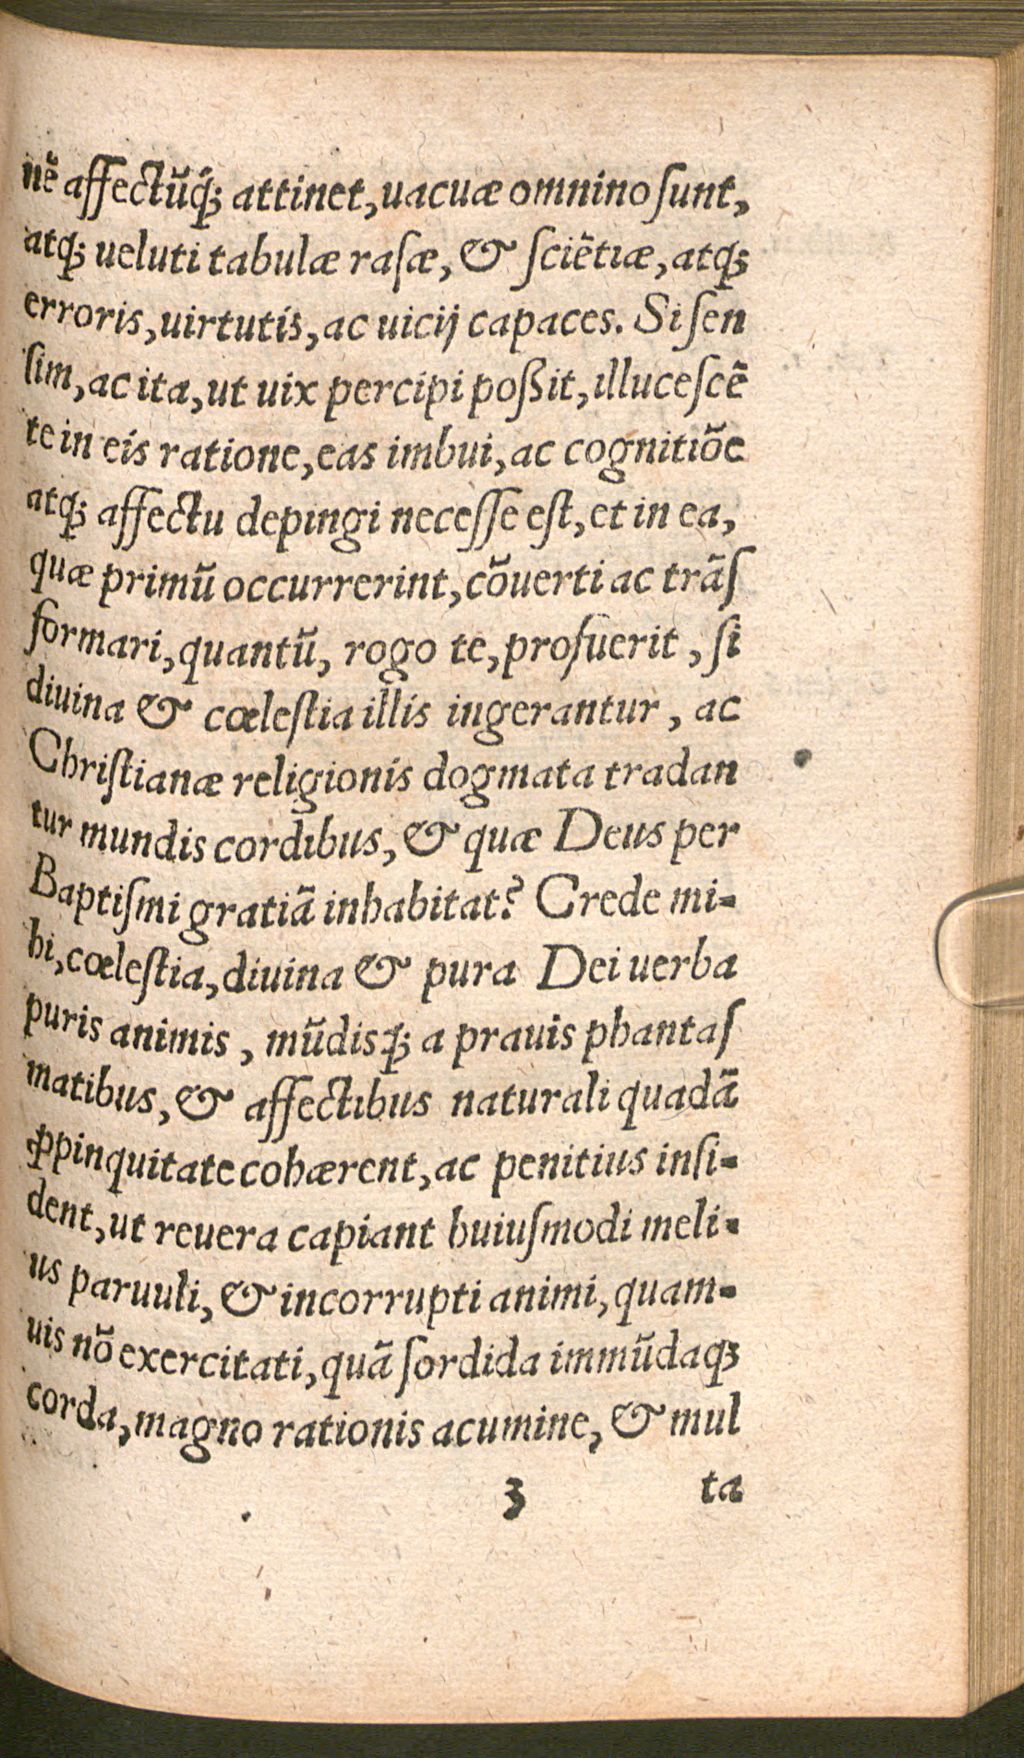 nẽ affectũq́ꝫ attinet, uacuæ omnino ſunt,
atqꝫ ueluti tabulæ raſæ, & ſciẽtiæ, atqꝫ
erroris, uirtutis, ac uicij capaces. Si ſen
ſim, ac ita, ut uix percipi poßit, illuceſcẽ
te in eis ratione, eas imbui, ac cognitiõe
atqꝫ affectu depingi neceſſe eſt, et in ea,
quæ primũ occurrerint, cõuerti ac trãſ
formari, quantũ, rogo te, profuerit, ſi
diuina & cœleſtia illis ingerantur, ac
Chriſtianæ religionis dogmata tradan
tur mundis cordibus, & quæ Deus per
Baptiſmi gratiã inhabitat? Crede mi-
hi, cœleſtia, diuina & pura Dei uerba
puris animis, mũdisqꝫ a prauis phantaſ
matibus, & affectibus naturali quadã
ꝓpinquitate cohærent, ac penitius inſi-
dent, ut reuera capiant huiuſmodi meli-
us paruuli, & incorrupti animi, quam-
uis nõ exercitati, quã ſordida immũdaqꝫ
corda, magno rationis acumine, & mul
3 ta